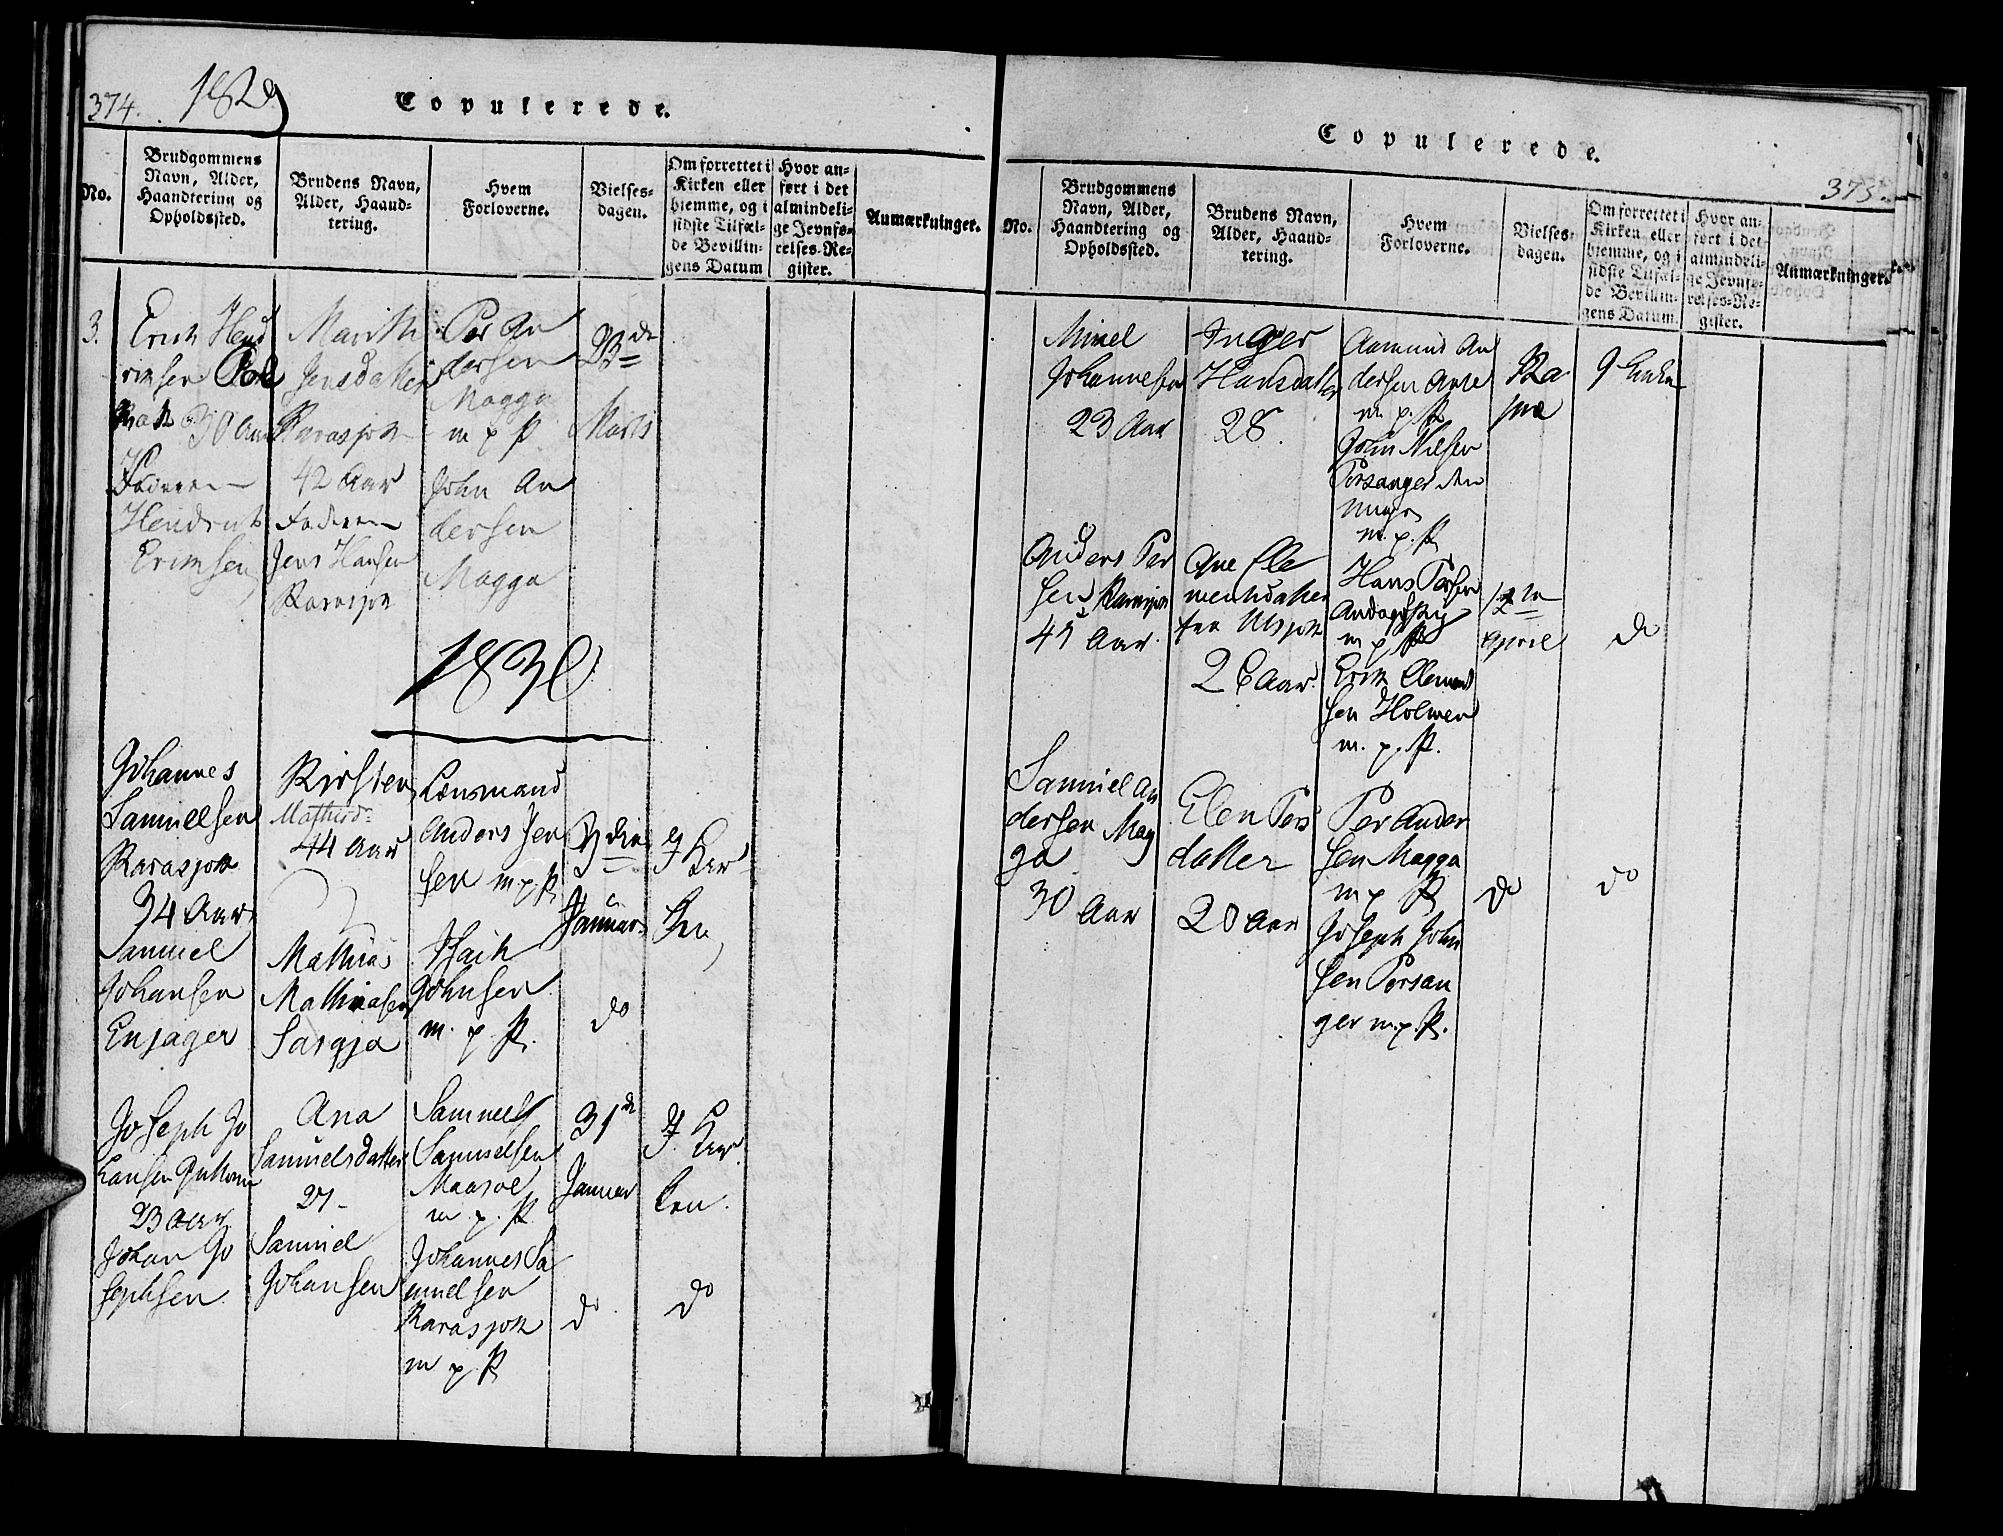 374. 1829
Copulerede.
No.
Brudgommens
Navn, Alder,
Haandtering og
Opholdssted.
Brudens Navn,
Alder, Haand-
tering.
Hvem
Forloverne.
Vielses-
dagen.
Om forrettet i
Kirken eller
hjemme, og i
sidste Tilfæl-
de Bevillin-
gens Datum
Hvor an-
ført i det
almindeli-
ge Jevnfø-
relses-Re-
gister.
Anmærkninger.
3.
Erich Hend
richsen
30 Aar
Faderen
Hendrich
Erichsen
Marith
Jensdatter
Karasjok
42 Aar
Faderen
Jens Hansen
Karasjok
Per An
dersen
Magga
m p P
John An
dersen
Magga
23de
Marts
1830
Johannes
Samuelsen
Karasjok
34 Aar
Samuel
Johansen
Enjager
Kirsten
Mathisd-
44 Aar
Mathias
Mathiasen
Sargja
Lensmand
Anders Jen
sen m.p.P.
Isach
Johnsen
m. p. P.
Januar
do
I Kir
ken
Joseph Jo
hansen
23 Aar
Johan Jo
sephsen
Ana
Samuelsdatter
27-
Samuel
Johansen
Samuel
Samuelsen
Maasøe
m. p. P.
Johannes Sa
muelsen
Karasjok
m p. P
31de
Januar
do
I Kir
ken.
do
Copulerede.
375.
No.
Brudgommens
Navn, Alder,
Haandtering og
Opholdssted.
Brudens Navn,
Alder, Haand-
tering.
Hvem
Forloverne.
Vielses-
dagen.
Om forrettet i
Kirken eller
hjemme, og i
sidste Tilfæl-
de Bevillin-
gens Datum.
Hvor an-
ført i det
almindeli-
ge Jevnfø-
relses-Re-
gister.
Anmærkninger.
Johannesen
23 Aar
Inger
Hansdatter
28.
Aamund An
dersen
m. p. P.
John Nilsen
Porsanger
m. p. P.
Anders Per
sen Karasjok
Aar.
Ane Cle
mentsdatter
fra Utsjok
26 Aar.
Hans Persen
m p P
Erik Clemend
sen Holmen
m. p. P.
April
do
Samuel An
dersen Mag
ga
30 Aar
Elen Pers
datter
20 Aar
Per Ander
sen Magga
m p P
Joseph John
sen Porsan
ger m.p.P.
do
do